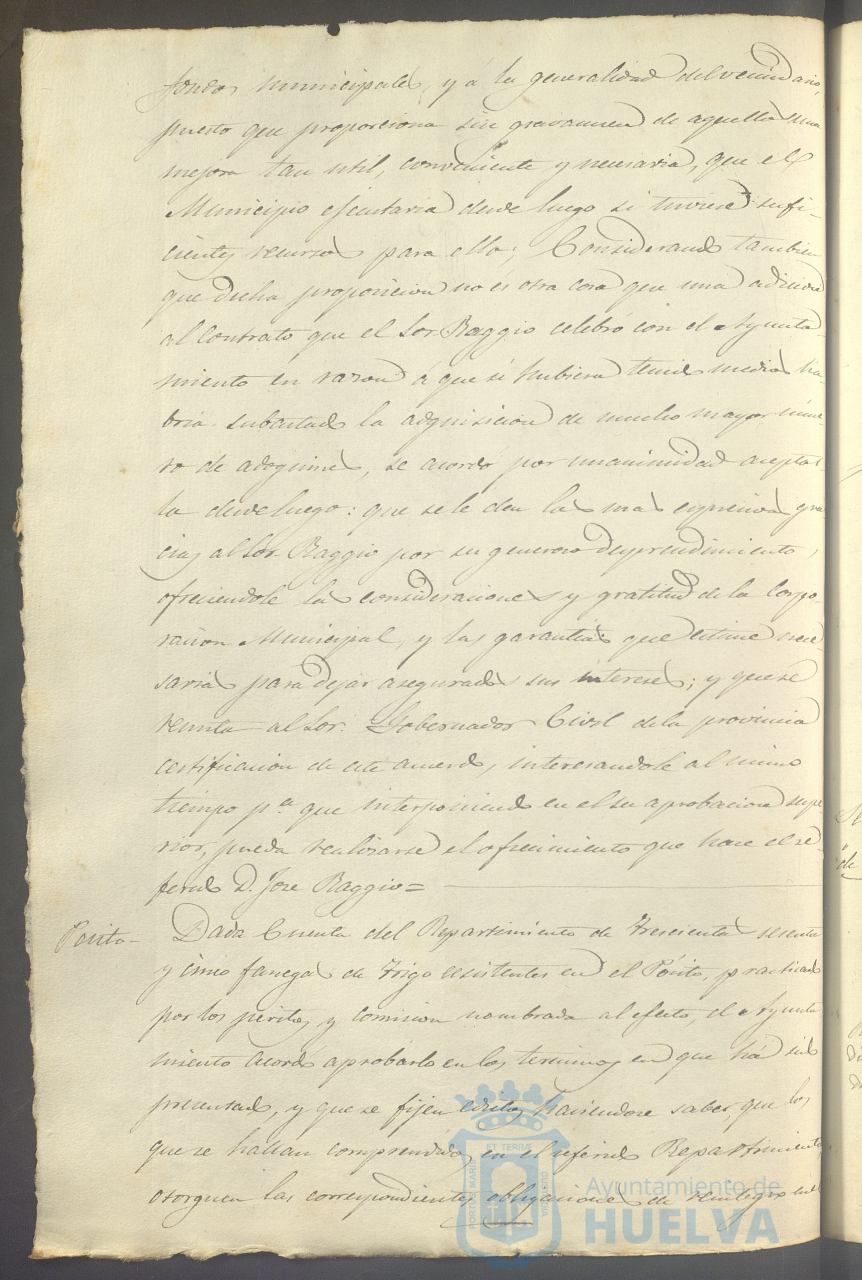 fondos municipales, y á la generalidad del vecindario,
puesto que proporciona sin gravamen de aquellos una
mejora tan util, conveniente y necesaria, que el
Municipio ejecutaria desde luego si tuviese sufi-
cientes recursos para ello; Considerando tambien
que dicha proposicion no es otra cosa que una adicion
al contrato que el Sor. Raggio celebró con el Ayunta-
miento en razon á que si hubiera tenido medios ha-
bria subastado la adquisicion de mucho mayor núme-
ro de adoquines, se acordó por unanimidad aceptar
la desde luego: que se le den las mas expresivas gra-
cias al Sor. Raggio por su generoso desprendimiento,
ofreciendole las consideraciones y gratitud de la Corpo-
racion Municipal, y las garantias que estime nece-
sarias para dejar asegurados sus intereses; y que se
remita al Sor. Gobernador Civil de la provincia
certificacion de este acuerdo, interesandole al mismo
tiempo pª que interponiendo en el su aprobacion supe-
rior, pueda realizarse el ofrecimiento que hace el re-
ferido D. Jose Raggio=
Pósito- Dada Cuenta del Repartimiento de Trescientas sesenta
y cinco fanegas de Trigo existentes en el Pósito, practicado
por los peritos y comision nombrada al efecto, el Ayunta
miento acordó aprobarlo en los terminos en que há sido
presentado, y que se fijen edictos haciendose saber que los
que se hallan comprendidos en el referido Repartimiento
otorguen las correspondientes obligaciones de reintegro en el
PORTUS MARIS
ET TERRAE
CUSTODIA
Ayuntamiento de
HUELVA